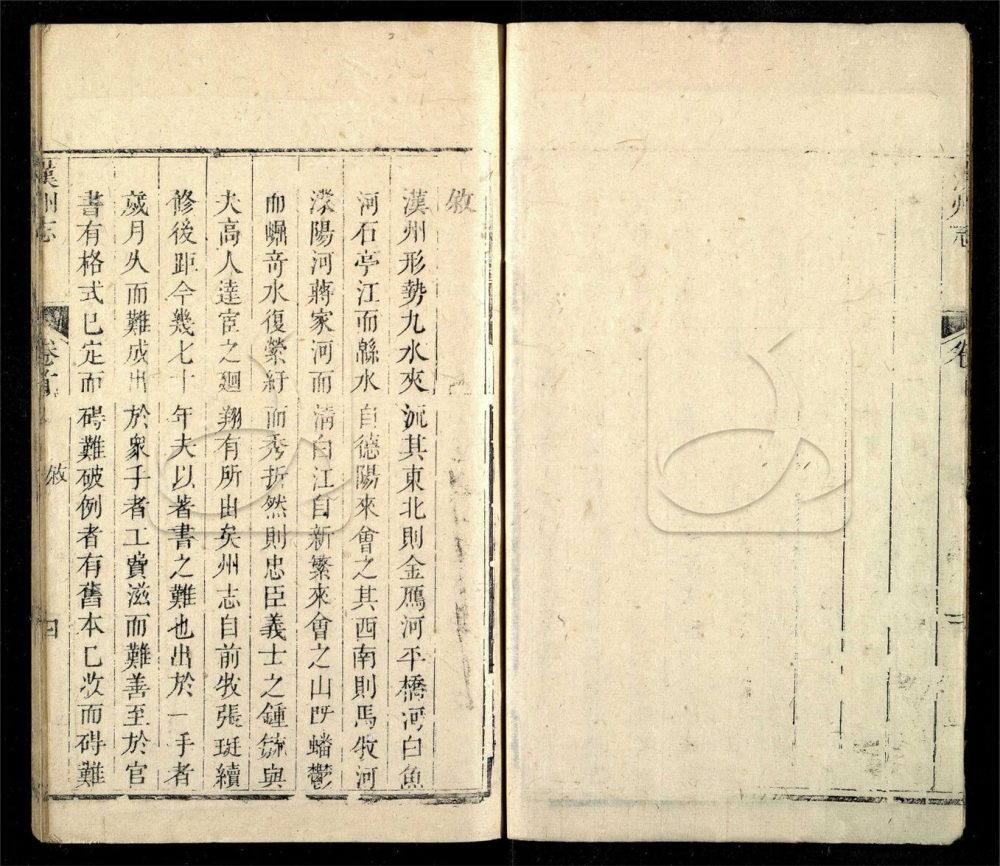 敘
漢州形勢九水夾流其東北則金鴈河平橋河白魚
河石亭江而緜水自德陽來會之其西南則馬牧河
濛陽河蔣家河而淸白江自新繁來會之山旣蟠鬱
而崛奇水復縈紆而秀折然則忠臣義士之鍾毓與
夫高人達宦之廻翔有所由矣州志自前牧張珽續
修後距今幾七十年夫以著書之難也出於一手者
歲月久而難成出於衆手者工費滋而難善至於官
書有格式已定而碍難破例者有舊本已收而碍難
漢州志
卷首
敘
四
州志
卷